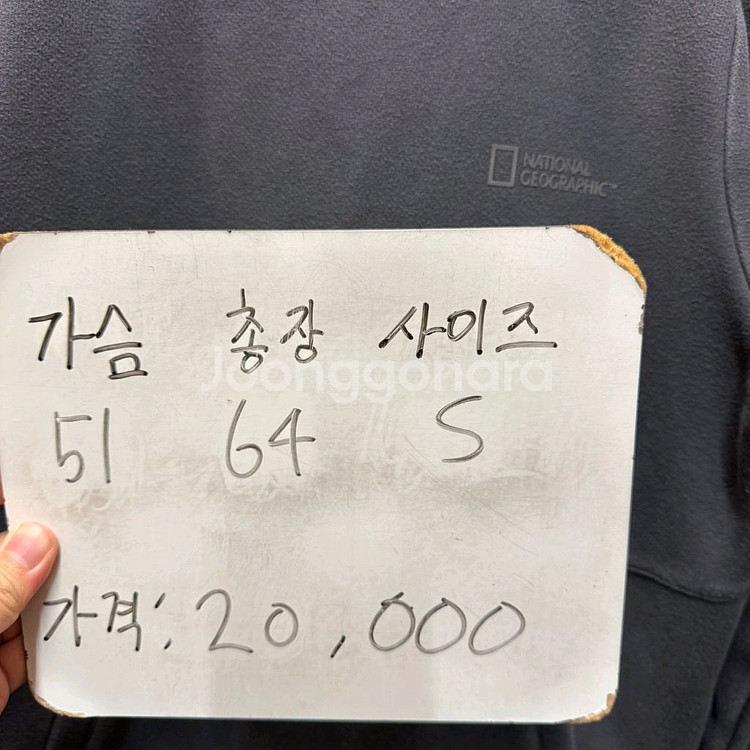 NATIONAL
GEOGRAPHIC™
가슴 총장 사이즈
Joonggonara
51 64 S
가격: 20,000